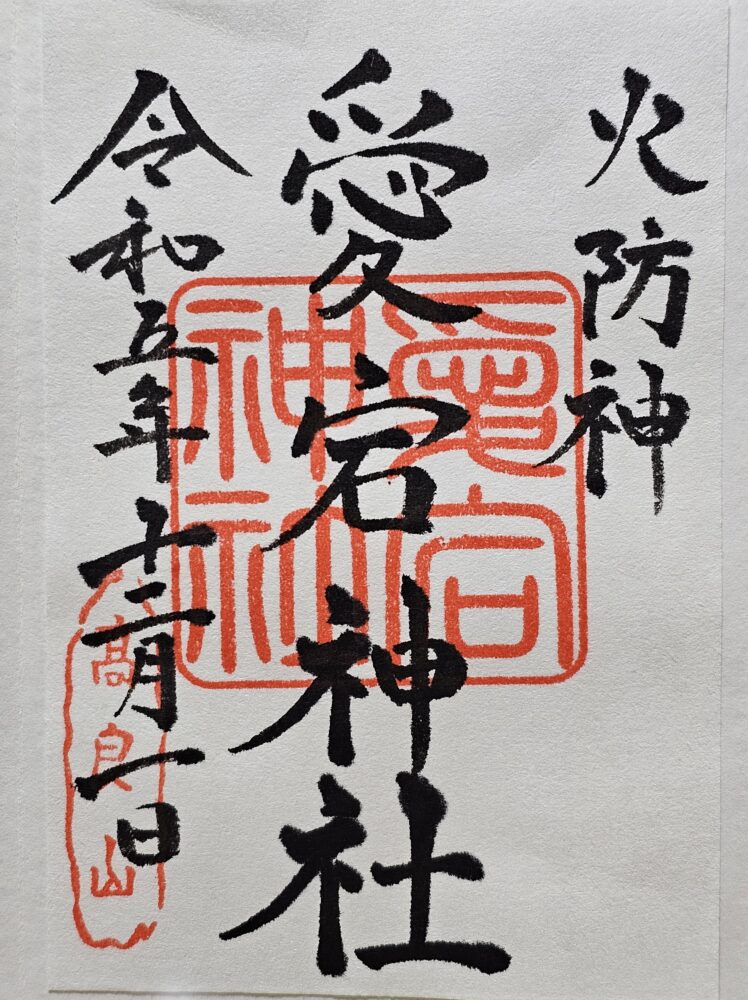 火防神
愛宕神社
愛宕神社
令和五年十二月一日
高良山